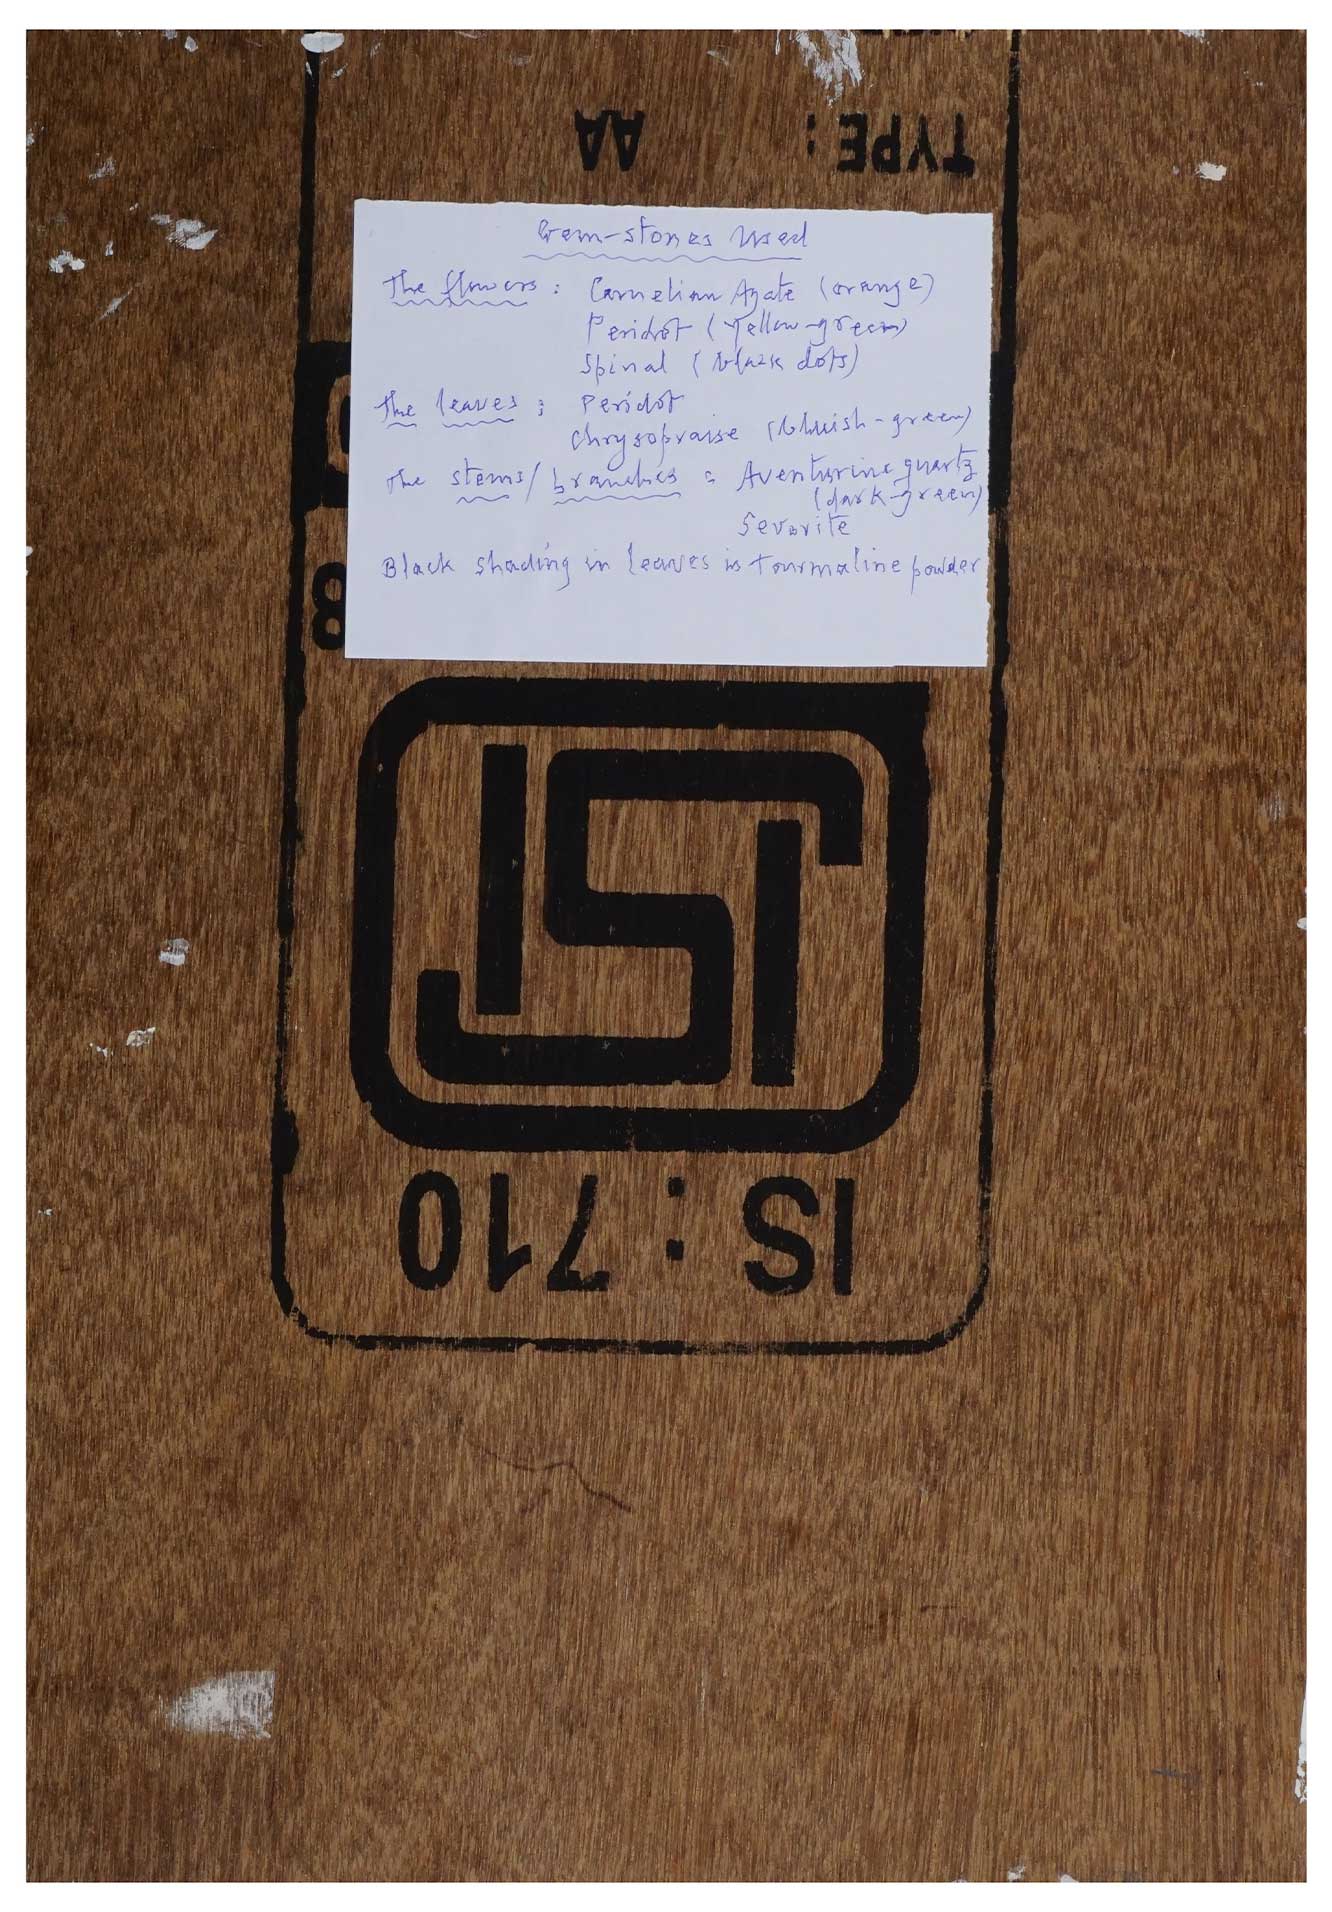 TYPE : AA
Gem-stones Used
The flowers : Carnelian Agate (orange)
Peridot (Yellow-green)
Spinal (black dots)
The leaves : Peridot
Chrysopraise (bluish-green)
The stems/branches : Aventurine quartz
(dark-green)
Sevorite
Black shading in leaves is tourmaline powder
8
ISI
IS : 710